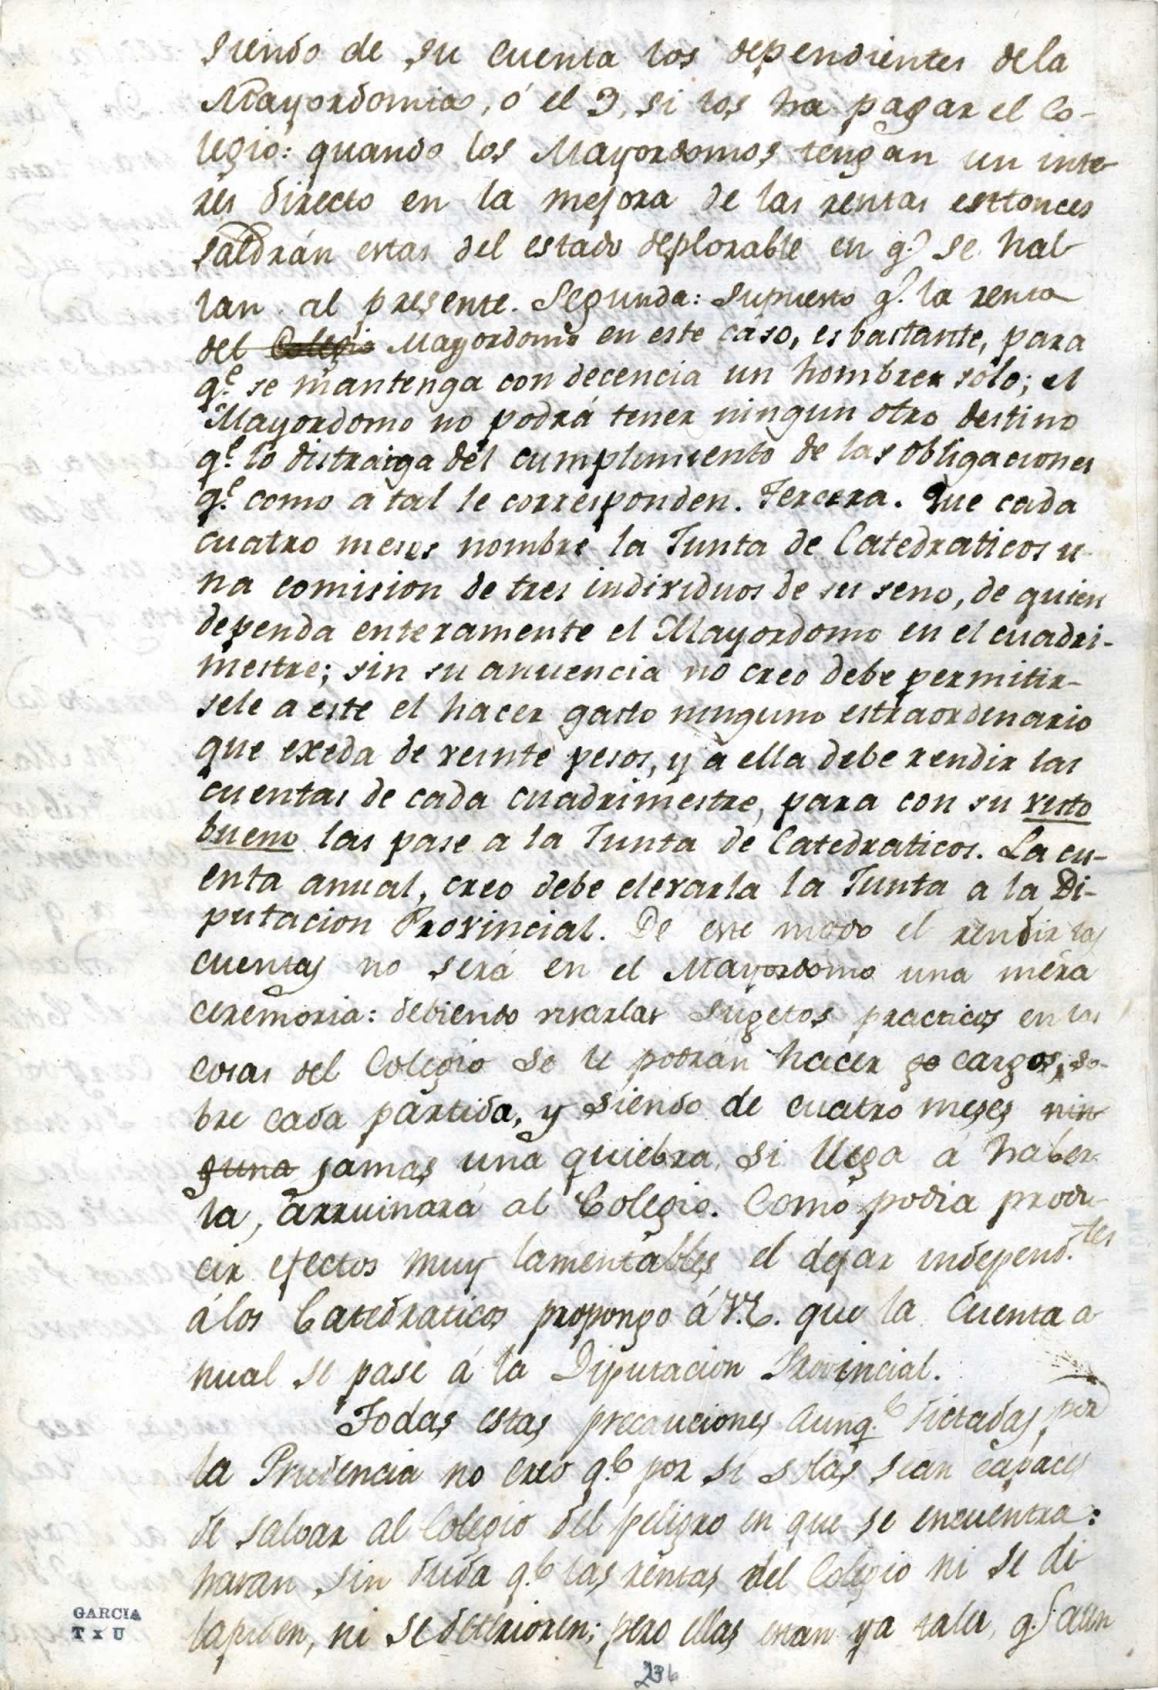 siendo de su cuenta los dependientes de la
Mayordomia, ó el 3, si los ha pagar el Co-
legio: quando los Mayordomos tengan un inte-
res directo en la mejora de las rentas esttonces
saldrán estas del estado deplorable en q.e se hal-
lan al presente. Segunda: supuesto q.e la renta
del Colegio Mayordomo en este cáso, es bastante, para
q.e se mantenga con decencia un hombrer sólo; el
Mayordomo no podrá tener ningun otro destino
q.e lo distraiga del cumplimiento de las obligaciones
q.e como a tal le corresponden. Tercera. Que cada
cuatro meses nombre la Junta de Catedraticos u-
na comision de tres individuos de su seno, de quien
dependa enteramente el Mayordomo en el cuadri-
mestre; sin su anuencia no creo debe permitir-
sele a este el hacer gasto ninguno estraordinario
que exeda de veinte pesos, y a ella debe rendir las
cuentas de cada cuadrimestre, para con su visto
bueno las pase a la Junta de Catedraticos. La cu-
enta anual, creo debe elevarla la Junta a la Di-
putacion Provincial. De este modo el rendir las
cuentas no será en el Mayordomo una mera
ceremonia: debiendo visarlas sugetos practicos en las
cosas del Colegio se le podrán hacer cargos, so-
bre cada partida, y siendo de cuatro meses nin
guna jamas una quiebra, si llega á haber-
la, arruinará al Colegio. Como podia produ-
cir efectos muy lamentables el dejar independ.tes
á los Catedraticos propongo á V.E. que la cuenta a
nual se pase á la Diputacion Provincial.
Todas estas precauciones aunq.e dictadas por
la Prudencia no creo q.e por sí solas sean capaces
de salvar al Colegio del peligro en que se encuentra:
haran sin duda q.e las rentas del Colegio ni se di
lapiden, ni se deterioren; pero ellas estan ya tales, q.e aun
GARCIA
T x U
236